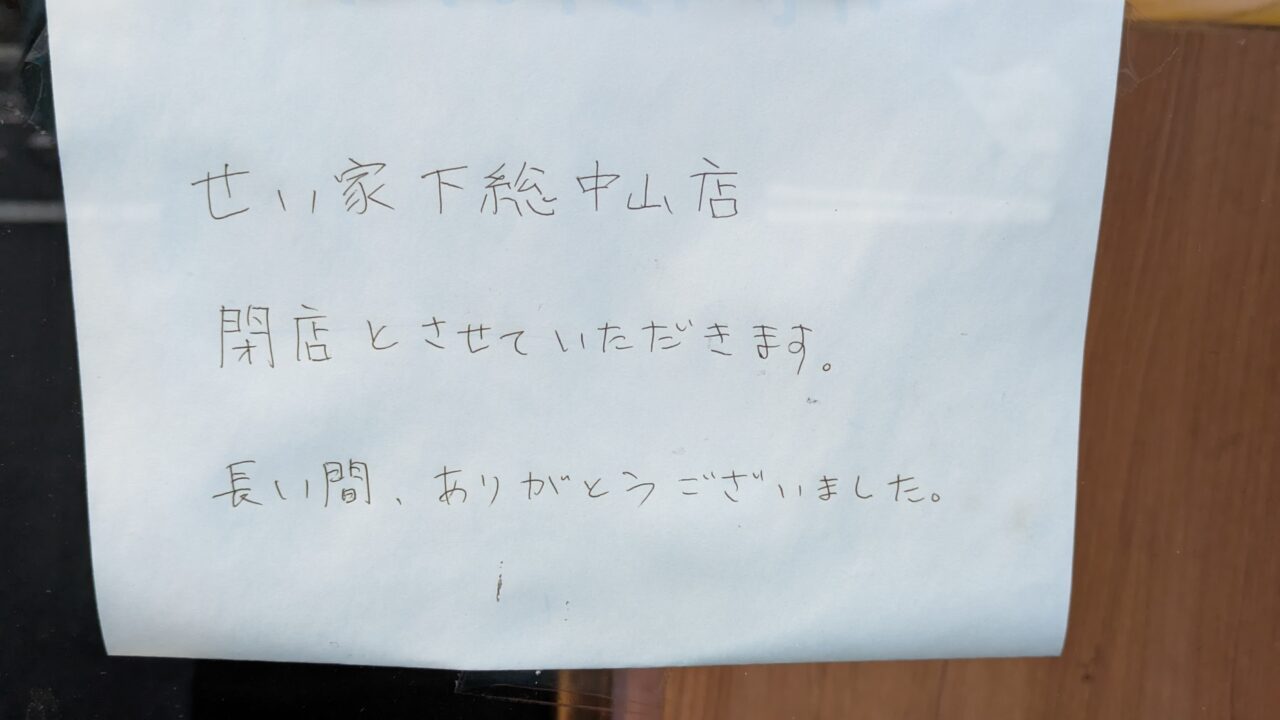 せい家下総中山店
閉店とさせていただきます。
長い間、ありがとうございました。